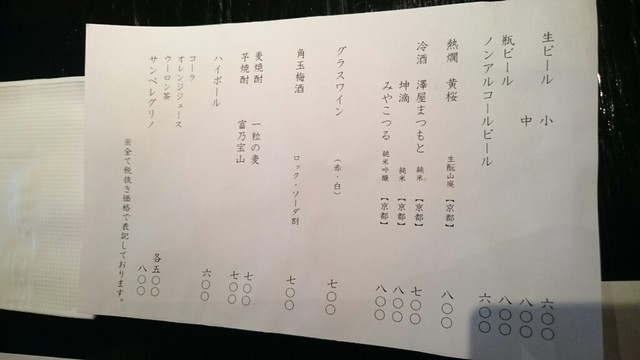 生ビール 小 六〇〇
中 八〇〇
瓶ビール 八〇〇
ノンアルコールビール 六〇〇
熱燗 黄桜 生酛山廃 【京都】 八〇〇
冷酒 澤屋まつもと 純米 【京都】 七〇〇
坤滴 純米 【京都】 八〇〇
みやこつる 純米吟醸 【京都】 八〇〇
グラスワイン （赤・白） 七〇〇
角玉梅酒 ロック・ソーダ割 七〇〇
麦焼酎 一粒の麦 七〇〇
芋焼酎 富乃宝山 七〇〇
ハイボール 六〇〇
コーラ
オレンジジュース
ウーロン茶 各五〇〇
サンペレグリノ 八〇〇
※全て税抜き価格で表記しております。